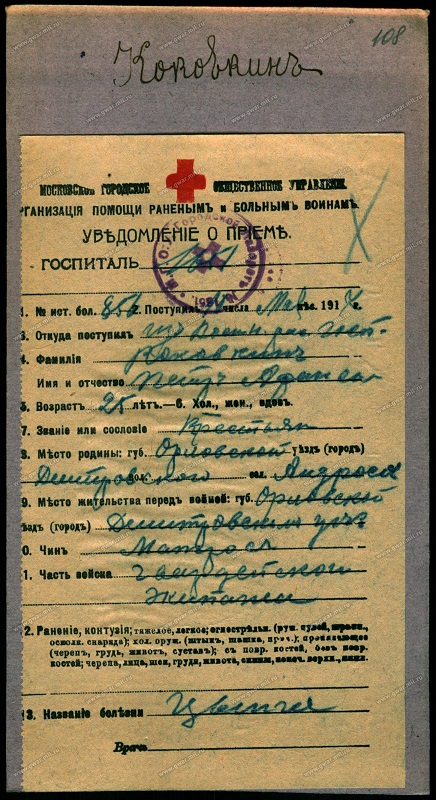 108
Коковкинъ
МОСКОВСКОЕ ГОРОДСКОЕ ОБЩЕСТВЕННОЕ УПРАВЛЕНІЕ.
РГАНИЗАЦІЯ ПОМОЩИ РАНЕНЫМЪ и БОЛЬНЫМЪ ВОИНАМЪ.
УВѢДОМЛЕНІЕ О ПРІЕМѢ.
ГОСПИТАЛЬ
1. № ист. бол. 2. Поступил числа Мая мѣс. 191 г.
3. Откуда поступил
4. Фамилія Коковкинъ
Имя и отчество Петръ Афанас
5. Возраст 25 лѣтъ.—6. Хол., жен., вдов.
7. Званіе или сословіе Крестьян
8. Мѣсто родины: губ. Орловской уѣзд (город)
Дмитровского вол. сел. Андросов
9. Мѣсто жительства перед войной: губ. Орловской
ѣзд (город) Дмитровскаго уѣз
0. Чин Матрос
1. Часть войска Гвардейского
Экипажа
2. Раненіе, контузія; тяжелое, легкое; огнестрѣльн. (руж. пулей, шрапн., осколк. снаряда); хол. оруж. (штык, шашка, проч.); проникающее
(череп, грудь, живот, сустав); с повр. костей, без повр.
костей; черепа, лица, шеи, груди, живота, спины, конеч. верхн., нижн.
13. Названіе болѣзни Цынга
Врач
www.gwar.mil.ru